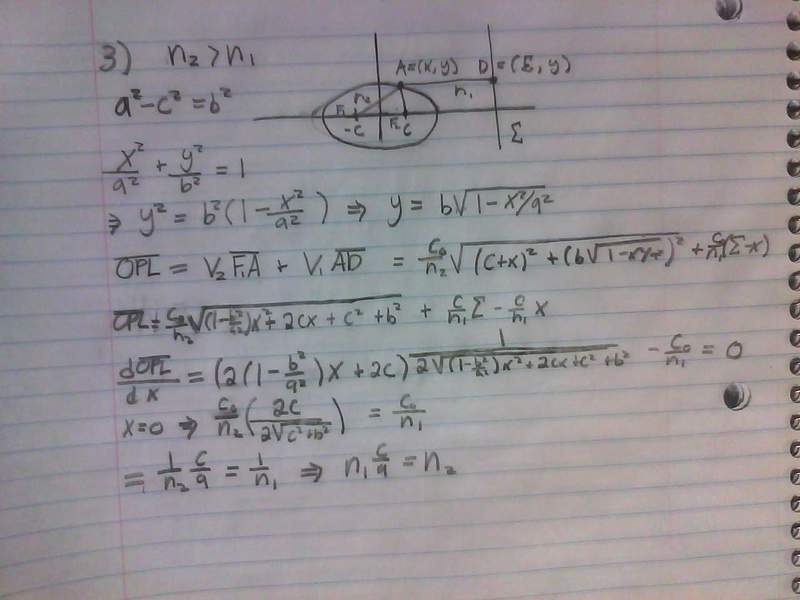 3) n₂ > n₁
A=(x,y) D=(Σ,y)
n₂ n₁
F₁ F₂
-c c Σ
a²-c² = b²
x²/a² + y²/b² = 1
⇒ y² = b²(1-x²/a²) ⇒ y = b√(1-x²/a²)
OPL = V₂F₁A + V₁AD = c₀/n₂ √((c+x)² + (b√(1-x²/a²))²) + c/n₁(Σ-x)
OPL = c₀/n₂ √((1-b²/a²)x² + 2cx + c² + b²) + c/n₁ Σ - c/n₁ x
dOPL/dx = (2(1-b²/a²)x + 2c) 1/(2√((1-b²/a²)x² + 2cx + c² + b²)) - c₀/n₁ = 0
x=0 ⇒ c₀/n₂ (2c/(2√(c²+b²))) = c₀/n₁
= 1/n₂ c/a = 1/n₁ ⇒ n₁ c/a = n₂